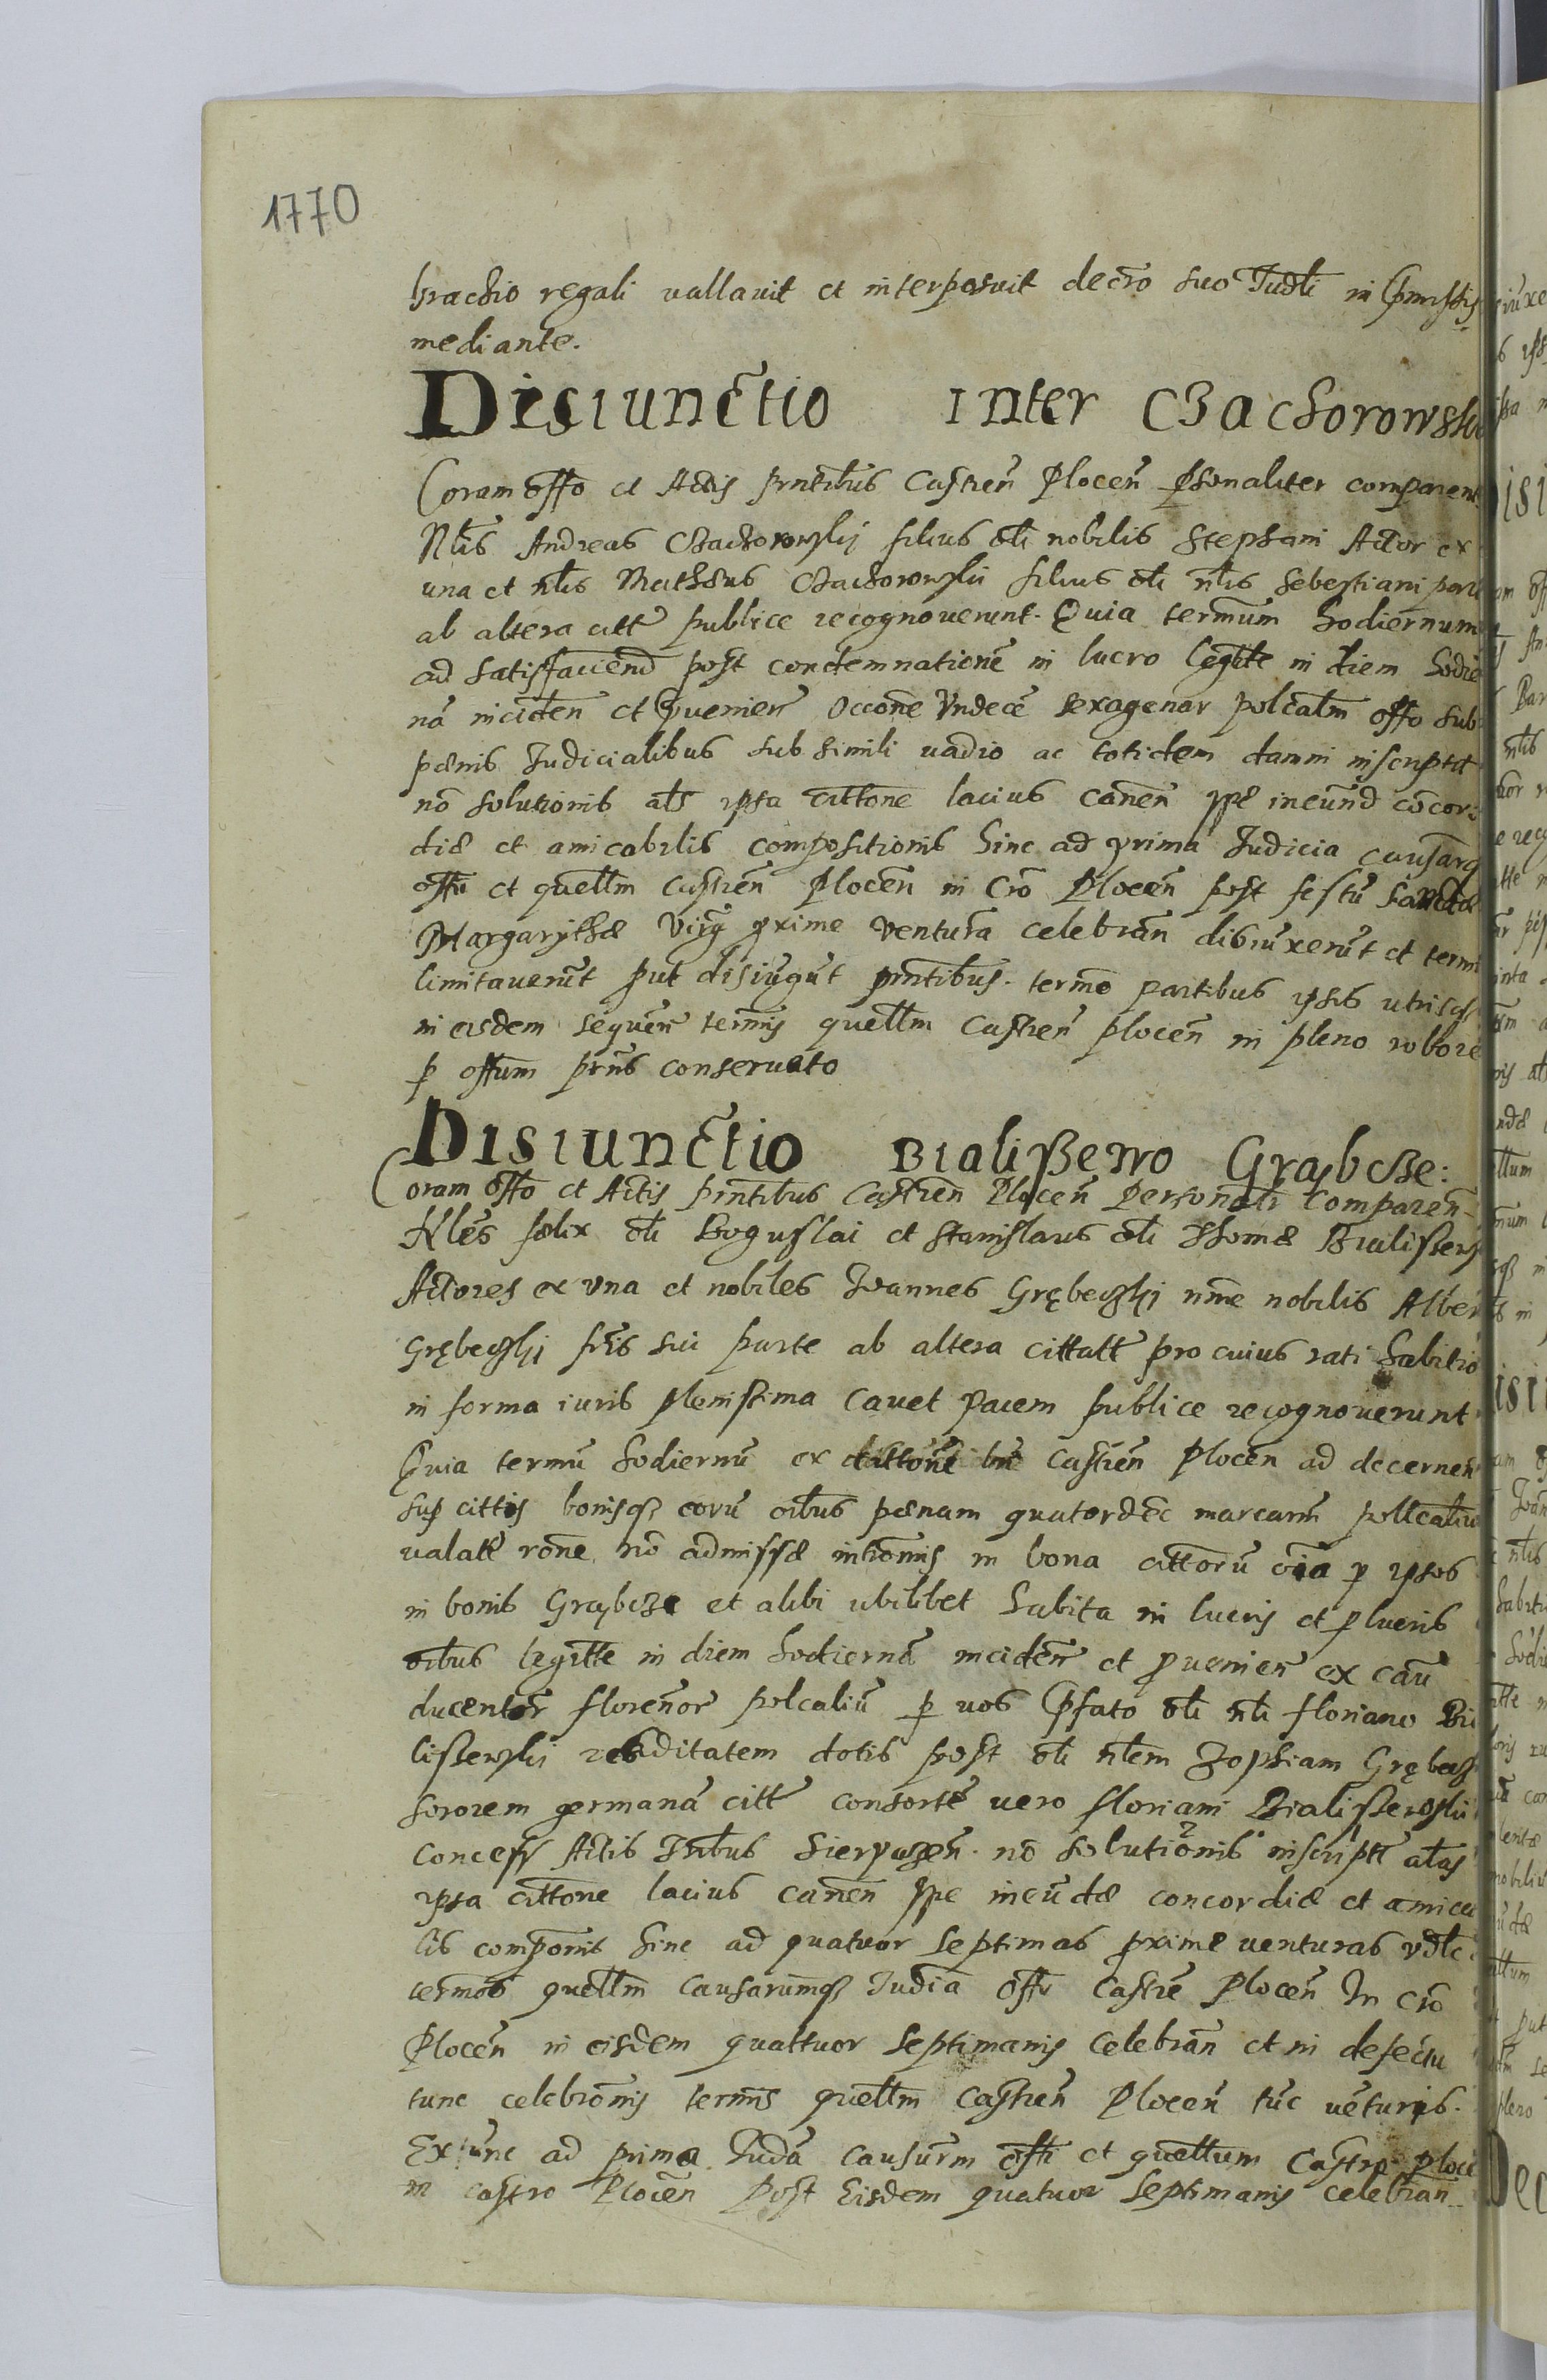 1770
brachio regali vallavit et interposuit decro suo Judli in pmissis
mediante.
Disiunctio Inter Czachorowski
Coram offo et Actis pntibus Castren Plocen psonaliter comparent
Nlis Andreas Czachorowskij filius oli nobilis Stephani Actor ex
una et nlis Mathæus Czachorowskii filius oli nlis Sebestiani parte
ab altera citt publice recognoverunt. Quia termum hodiernum
ad satisfaciend post condemnatione in lucro legitte in diem hodier
na inciden et pvenien occone Undece sexagenar polcalm offo sub
pænis Judicialibus sub simili vadio ac totidem damni inscript
no solutionis als ipsa cittone latius canen spe ineund cocor
diæ et amicabilis compositionis hinc ad prima Judicia causarq
offii et quellm Castren Plocen in Cro Plocen post festu Sanctæ
Margarythæ Virg pxime ventura celebran disiuxerut et termi
limitaverut put disiugut pntibus termo partibus ipsis utrisq
in eisdem sequen termis quellm Castren plocen in pleno robore
p offum pns conservato
Disiunctio Bialiszewo Graybcze:
Coram offo et Actis pntibus Castren Plocen Personali Comparen
Nles fælix oli Boguslai et Stanislaus oli Thomæ Bialiszews
Actores ex una et nobiles Joannes Grębeczki nme nobilis Alber
Grębeczki fris sui parte ab altera cittatt pro cuius rati habitio
in forma iuris plenissima cavet pacem publice recognoverunt
Quia termu hodiernu ex cittone Castren Plocen ad decernen
sup cittis bonisq eoru oibus pænam quatordec marcarm pollcaliu
valatt rone no admissæ intromis in bona cittoru oia p ipsos
in bonis Graybcze et alibi ubilibet habita in lucris et plucris
oibus legitte in diem hodierna inciden et pvenien ex cau
ducentor florenor polcaliu p vos pfato oli nli floriano Bia
liszewskii reditatem dotis post oli nlem Zophiam Grębecz
sororem germana citt consorte vero floriani Bialiszewskii
concess Actis Tribus Sierpczen no solutionis inscript alias
ipsa cittone latius canen spe ineudæ concordiæ et amica
lis componis hinc ad quatuor septimas pxime venturas vdlc
termos quellm causarumq Judia offii Castre Plocen In Cro
Plocen in eisdem quattuor septimanis celebran et in defectu
tunc celebronis termis quellm Castren Plocen tuc veturis.
Extunc ad prima Juda causarm offi et quellum Castre Ploce
in castro Plocen Post Eisdem quatuor septimanis celebran